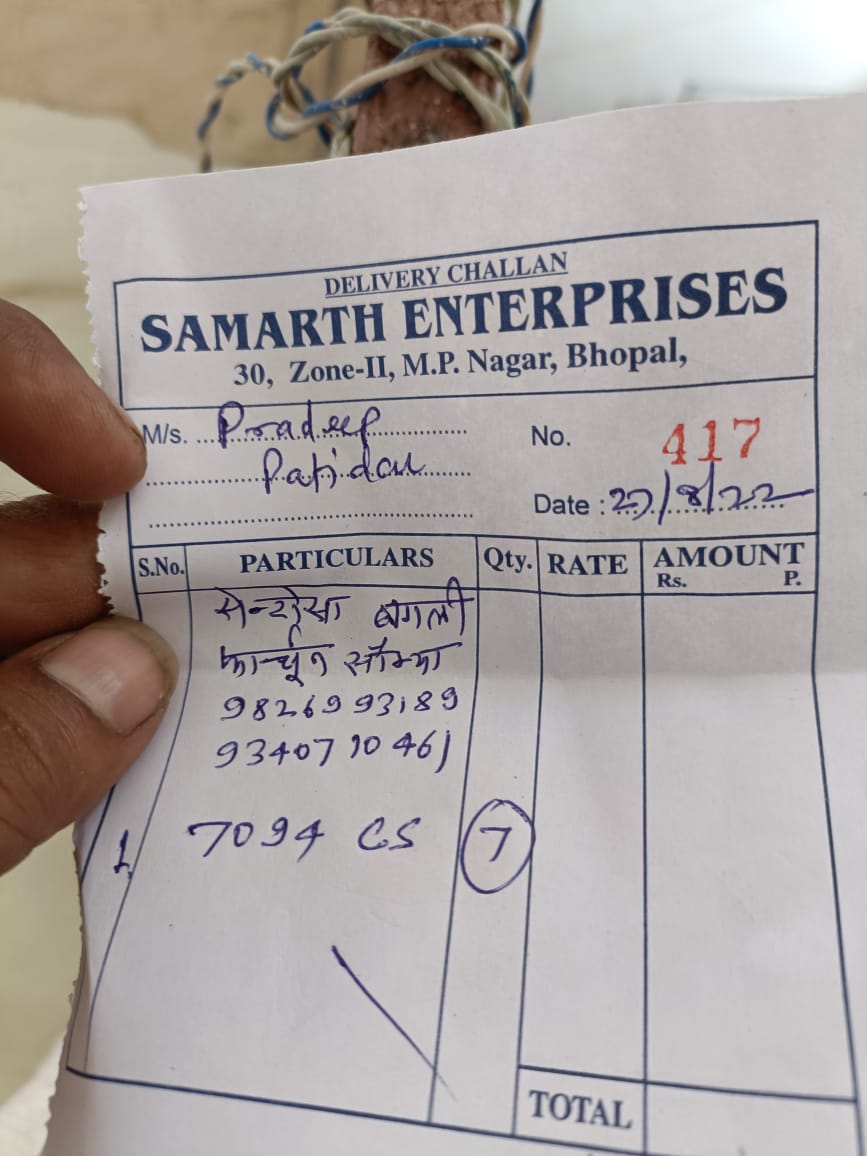 DELIVERY CHALLAN
SAMARTH ENTERPRISES
30, Zone-II, M.P. Nagar, Bhopal,
M/s. Pradeep
Patidar
No. 417
Date : 27/8/22
S.No. PARTICULARS Qty. RATE AMOUNT
Rs. P.
बंगली
सौम्या
9826993189
9340710461
1 7094 CS 7
TOTAL